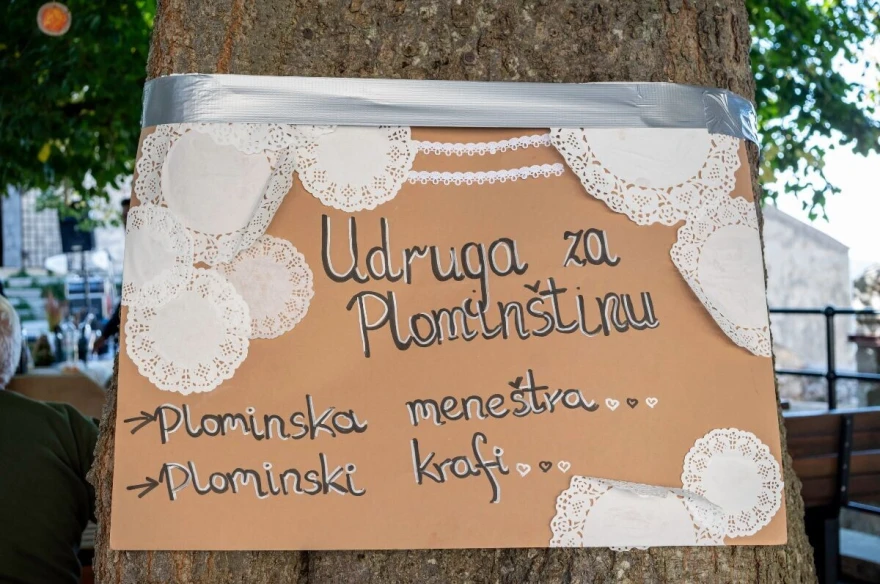 Udruga za
Plominštinu
→ Plominska meneštra ♡♡♡
→ Plominski krafi ♡♡♡